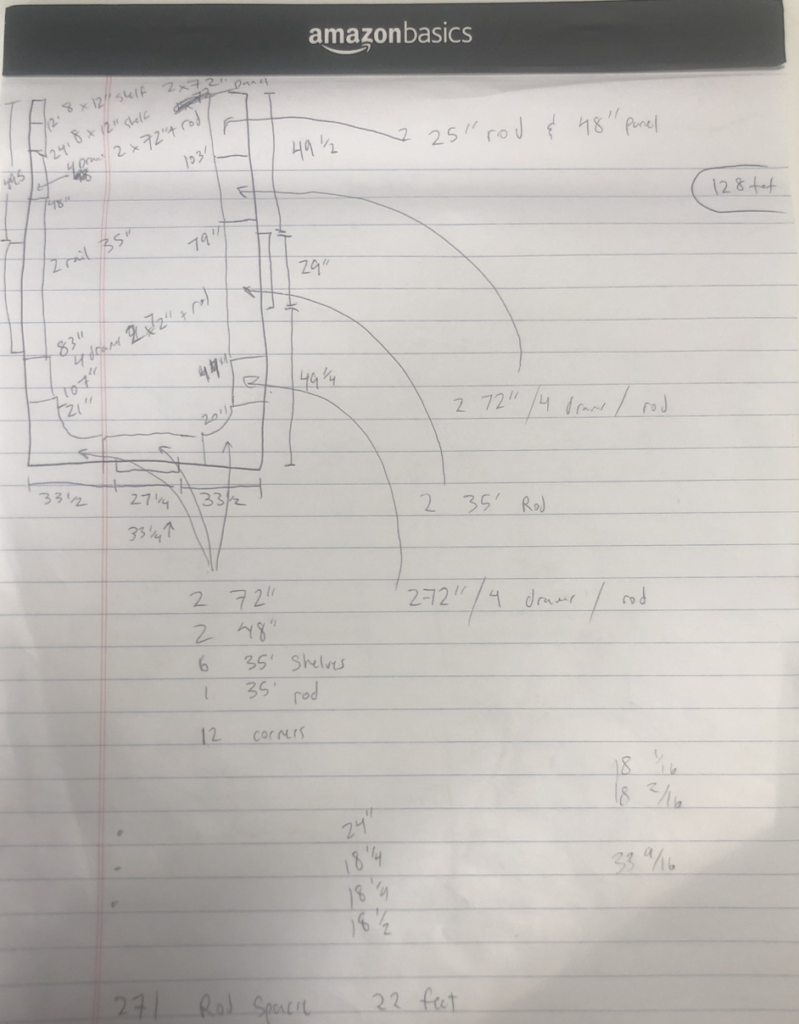 amazonbasics
8 x 12" shelf 2 x 72" panel
12'
8 x 12" shelf
24'
4 draw 2 x 72" + rod
2 25" rod & 48" panel
49 1/2
103'
128 feet
48"
2 rail 35"
79"
29"
83"
4 draws 2 72" + rod
107"
21"
44"
49 1/4
20"
2 72" /4 drawer / rod
33 1/2 27 1/4 33 1/2
33 1/4 ↑
2 35' Rod
2 72"
272" /4 drawer / rod
2 48"
6 35' Shelves
1 35' rod
12 corners
18 1/16
18 2/16
24"
18 1/4
33 9/16
18 1/4
18 1/2
271 Rod Space 22 feet